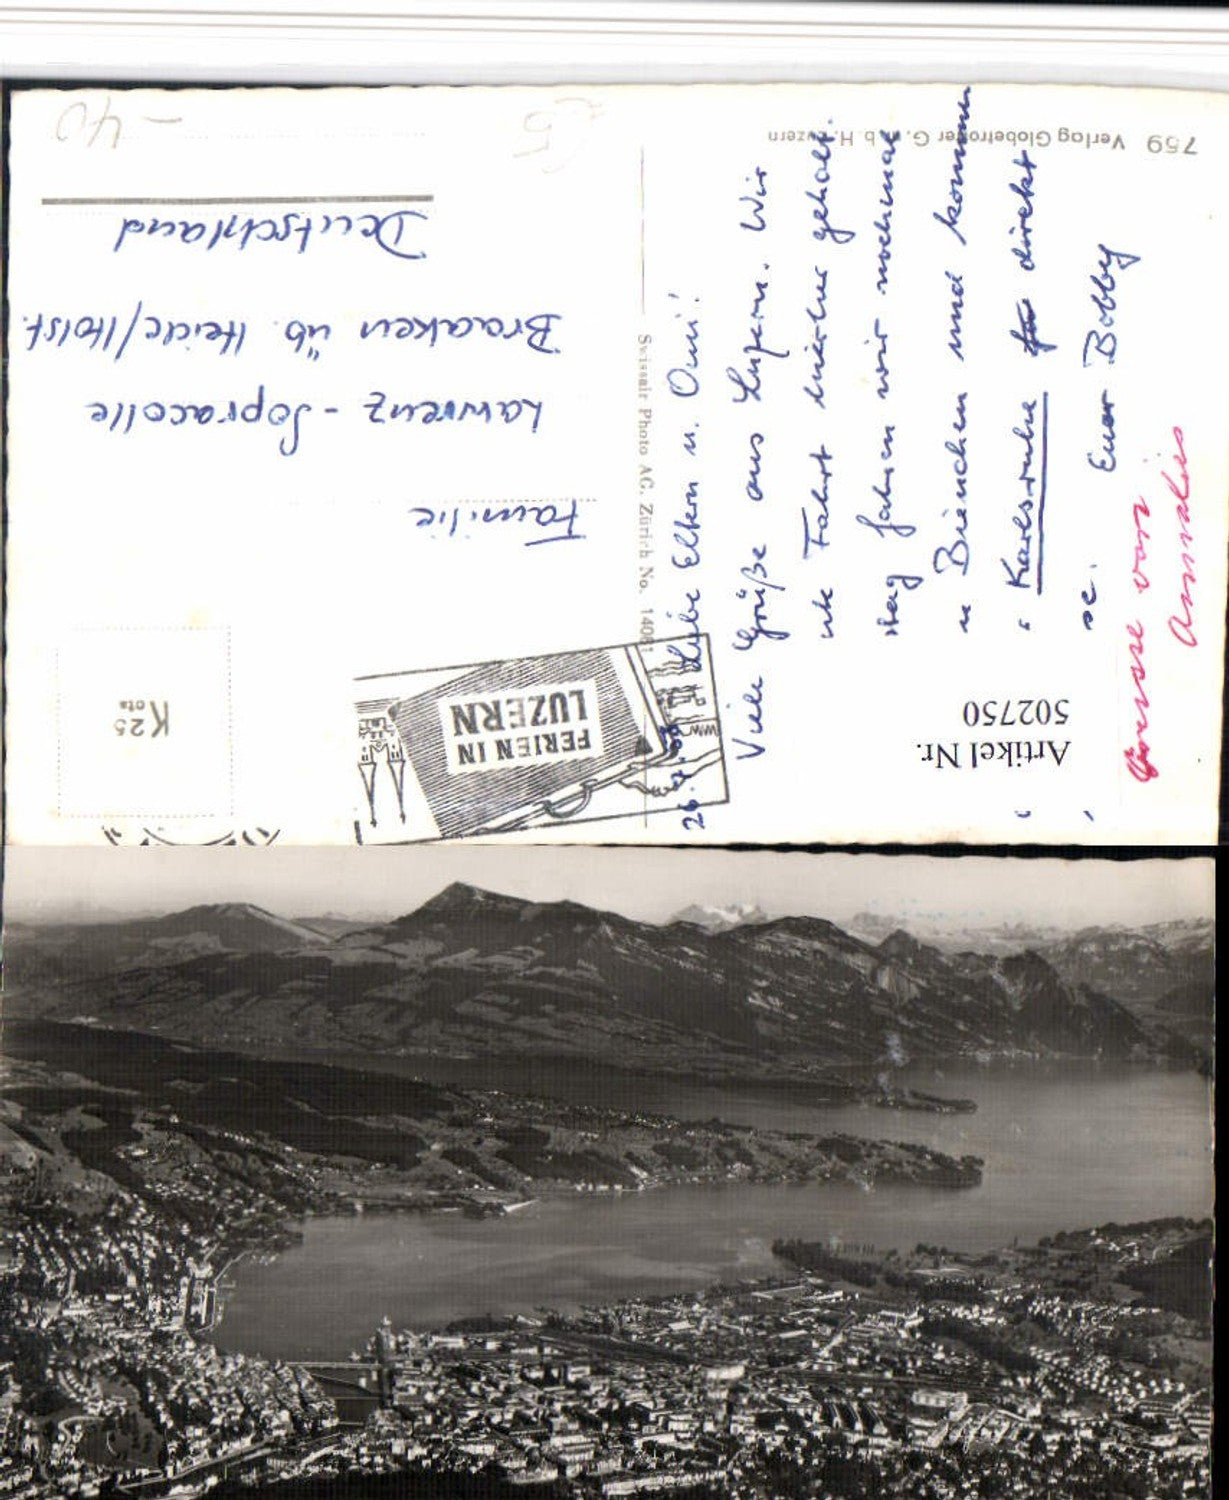 759 Verlag Globetrotter G.m.b.H. Luzern
Swissair Photo AG. Zürich No. 14081
-40
FERIEN IN
LUZERN
K 25
ots
Familie
Lawrenz - Sopracolle
Braaken üb. Heide/Holst.
Deutschland
Liebe Eltern u. Omi!
Viele Grüße aus Luzern. Wir
Fahrt hierher geholt.
fahren wir nochmal
Bienchen und kommen
Karlsruhe direkt
se. Euer Bobby
Grüsse von
Annalies
Artikel Nr.
502750